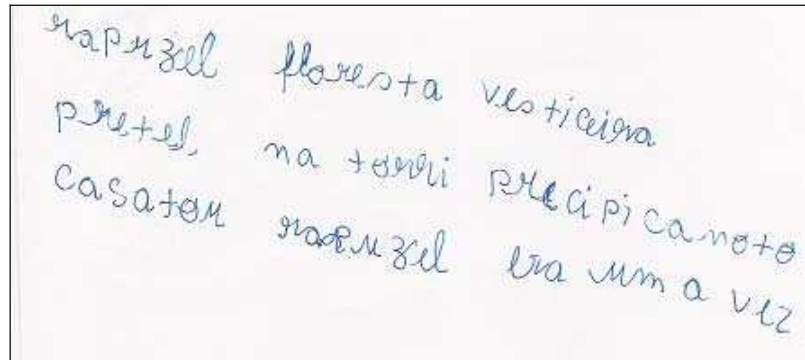 rapuzel floresta vesticeira
pretel, na torri precipicanoto
casatou rapuzel era um a vez